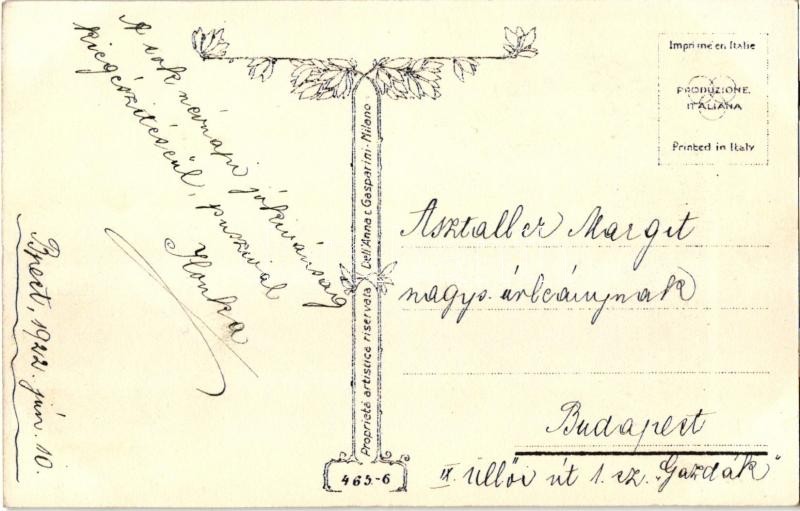 A sok névnapi jókivánság
kiegészitéseül, puszival
Ilonka
Bpest, 1922. jún. 10.
Proprietà artistica riservata Dell'Anna e Gasparini-Milano
465-6
Imprimé en Italie
PRODUZIONE
ITALIANA
Printed in Italy
Asztaller Margit
nagys. úrleánynak
Budapest
IX. Üllői út 1. sz. „Gazdák"